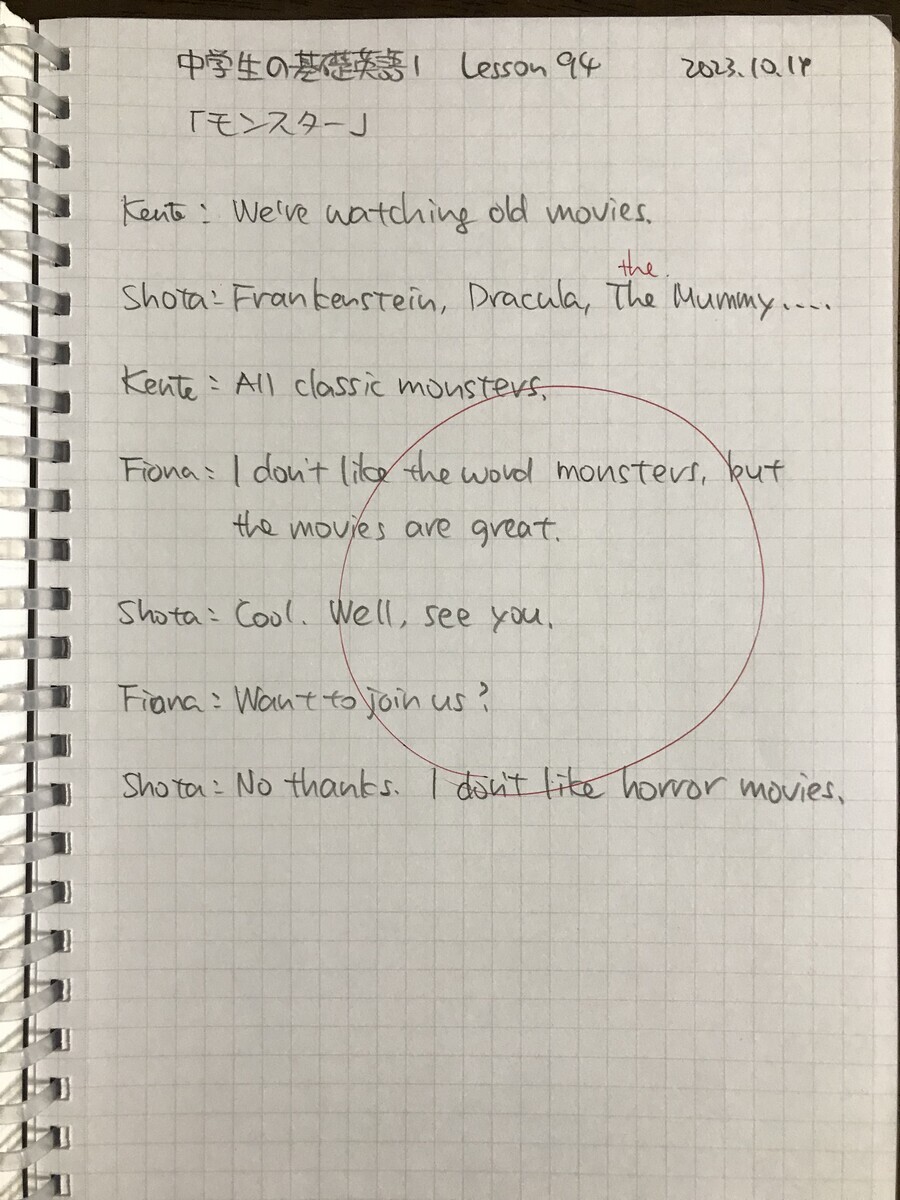 中学生の基礎英語1 Lesson 94 2023.10.19
「モンスター」
Kente: We've watching old movies.
the
Shota: Frankenstein, Dracula, The Mummy....
Kente: All classic monsters.
Fiona: I don't like the word monsters, but
the movies are great.
Shota: Cool. Well, see you.
Fiona: Want to join us?
Shota: No thanks. I don't like horror movies.